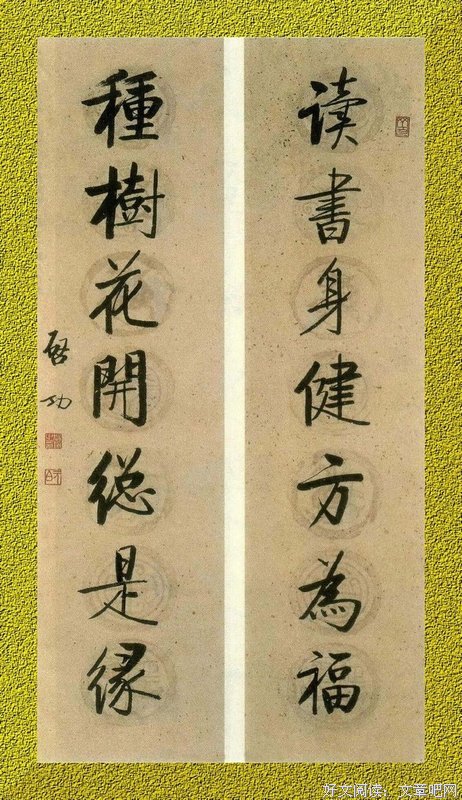 读书身健方為福
種樹花開總是緣
啓功
好文阅读：文章吧网